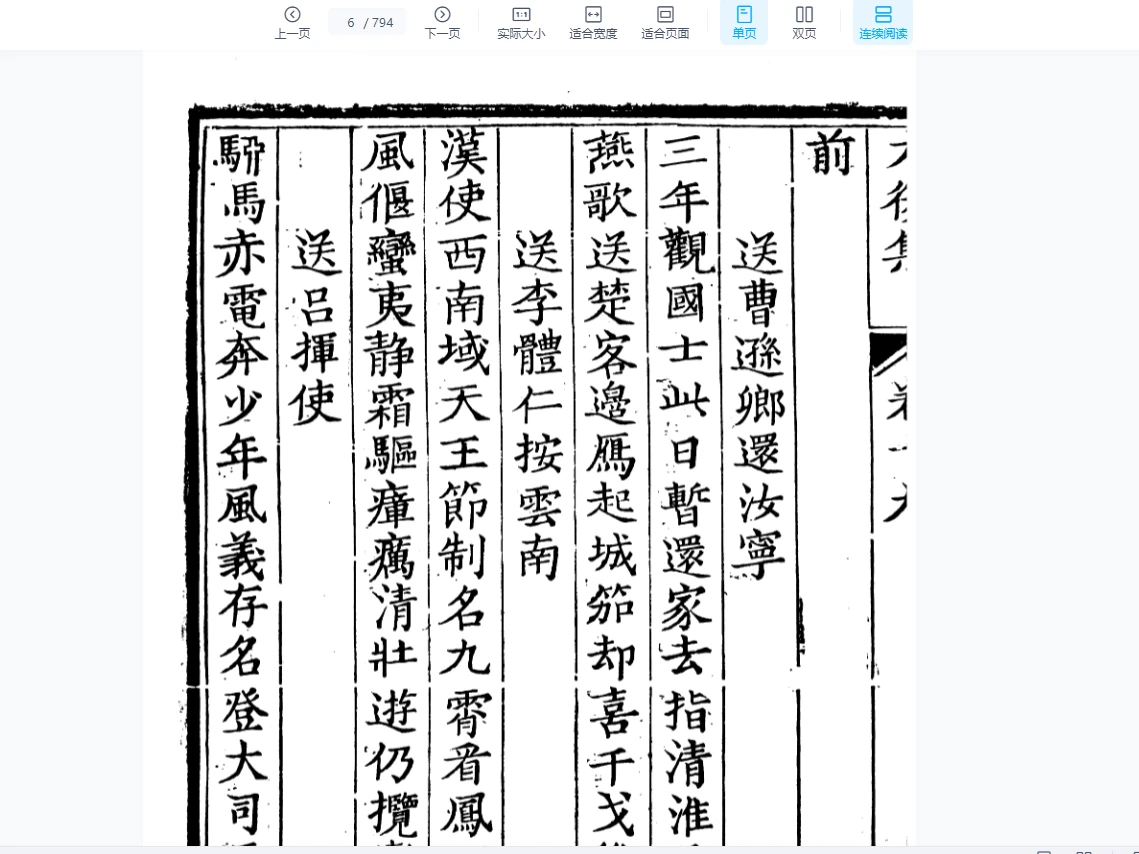 上一页
6 / 794
下一页
1:1
实际大小
适合宽度
适合页面
单页
双页
连续阅读
前
送曹遜鄉還汝寧
三年觀國士此日暫還家去指清淮
燕歌送楚客邉鴈起城笳却喜千戈
送李體仁按雲南
漢使西南域天王節制名九霄看鳳
風偃蠻夷静霜驅瘴癘清壯遊仍攬
送吕揮使
馬赤電奔少年風義存名登大司